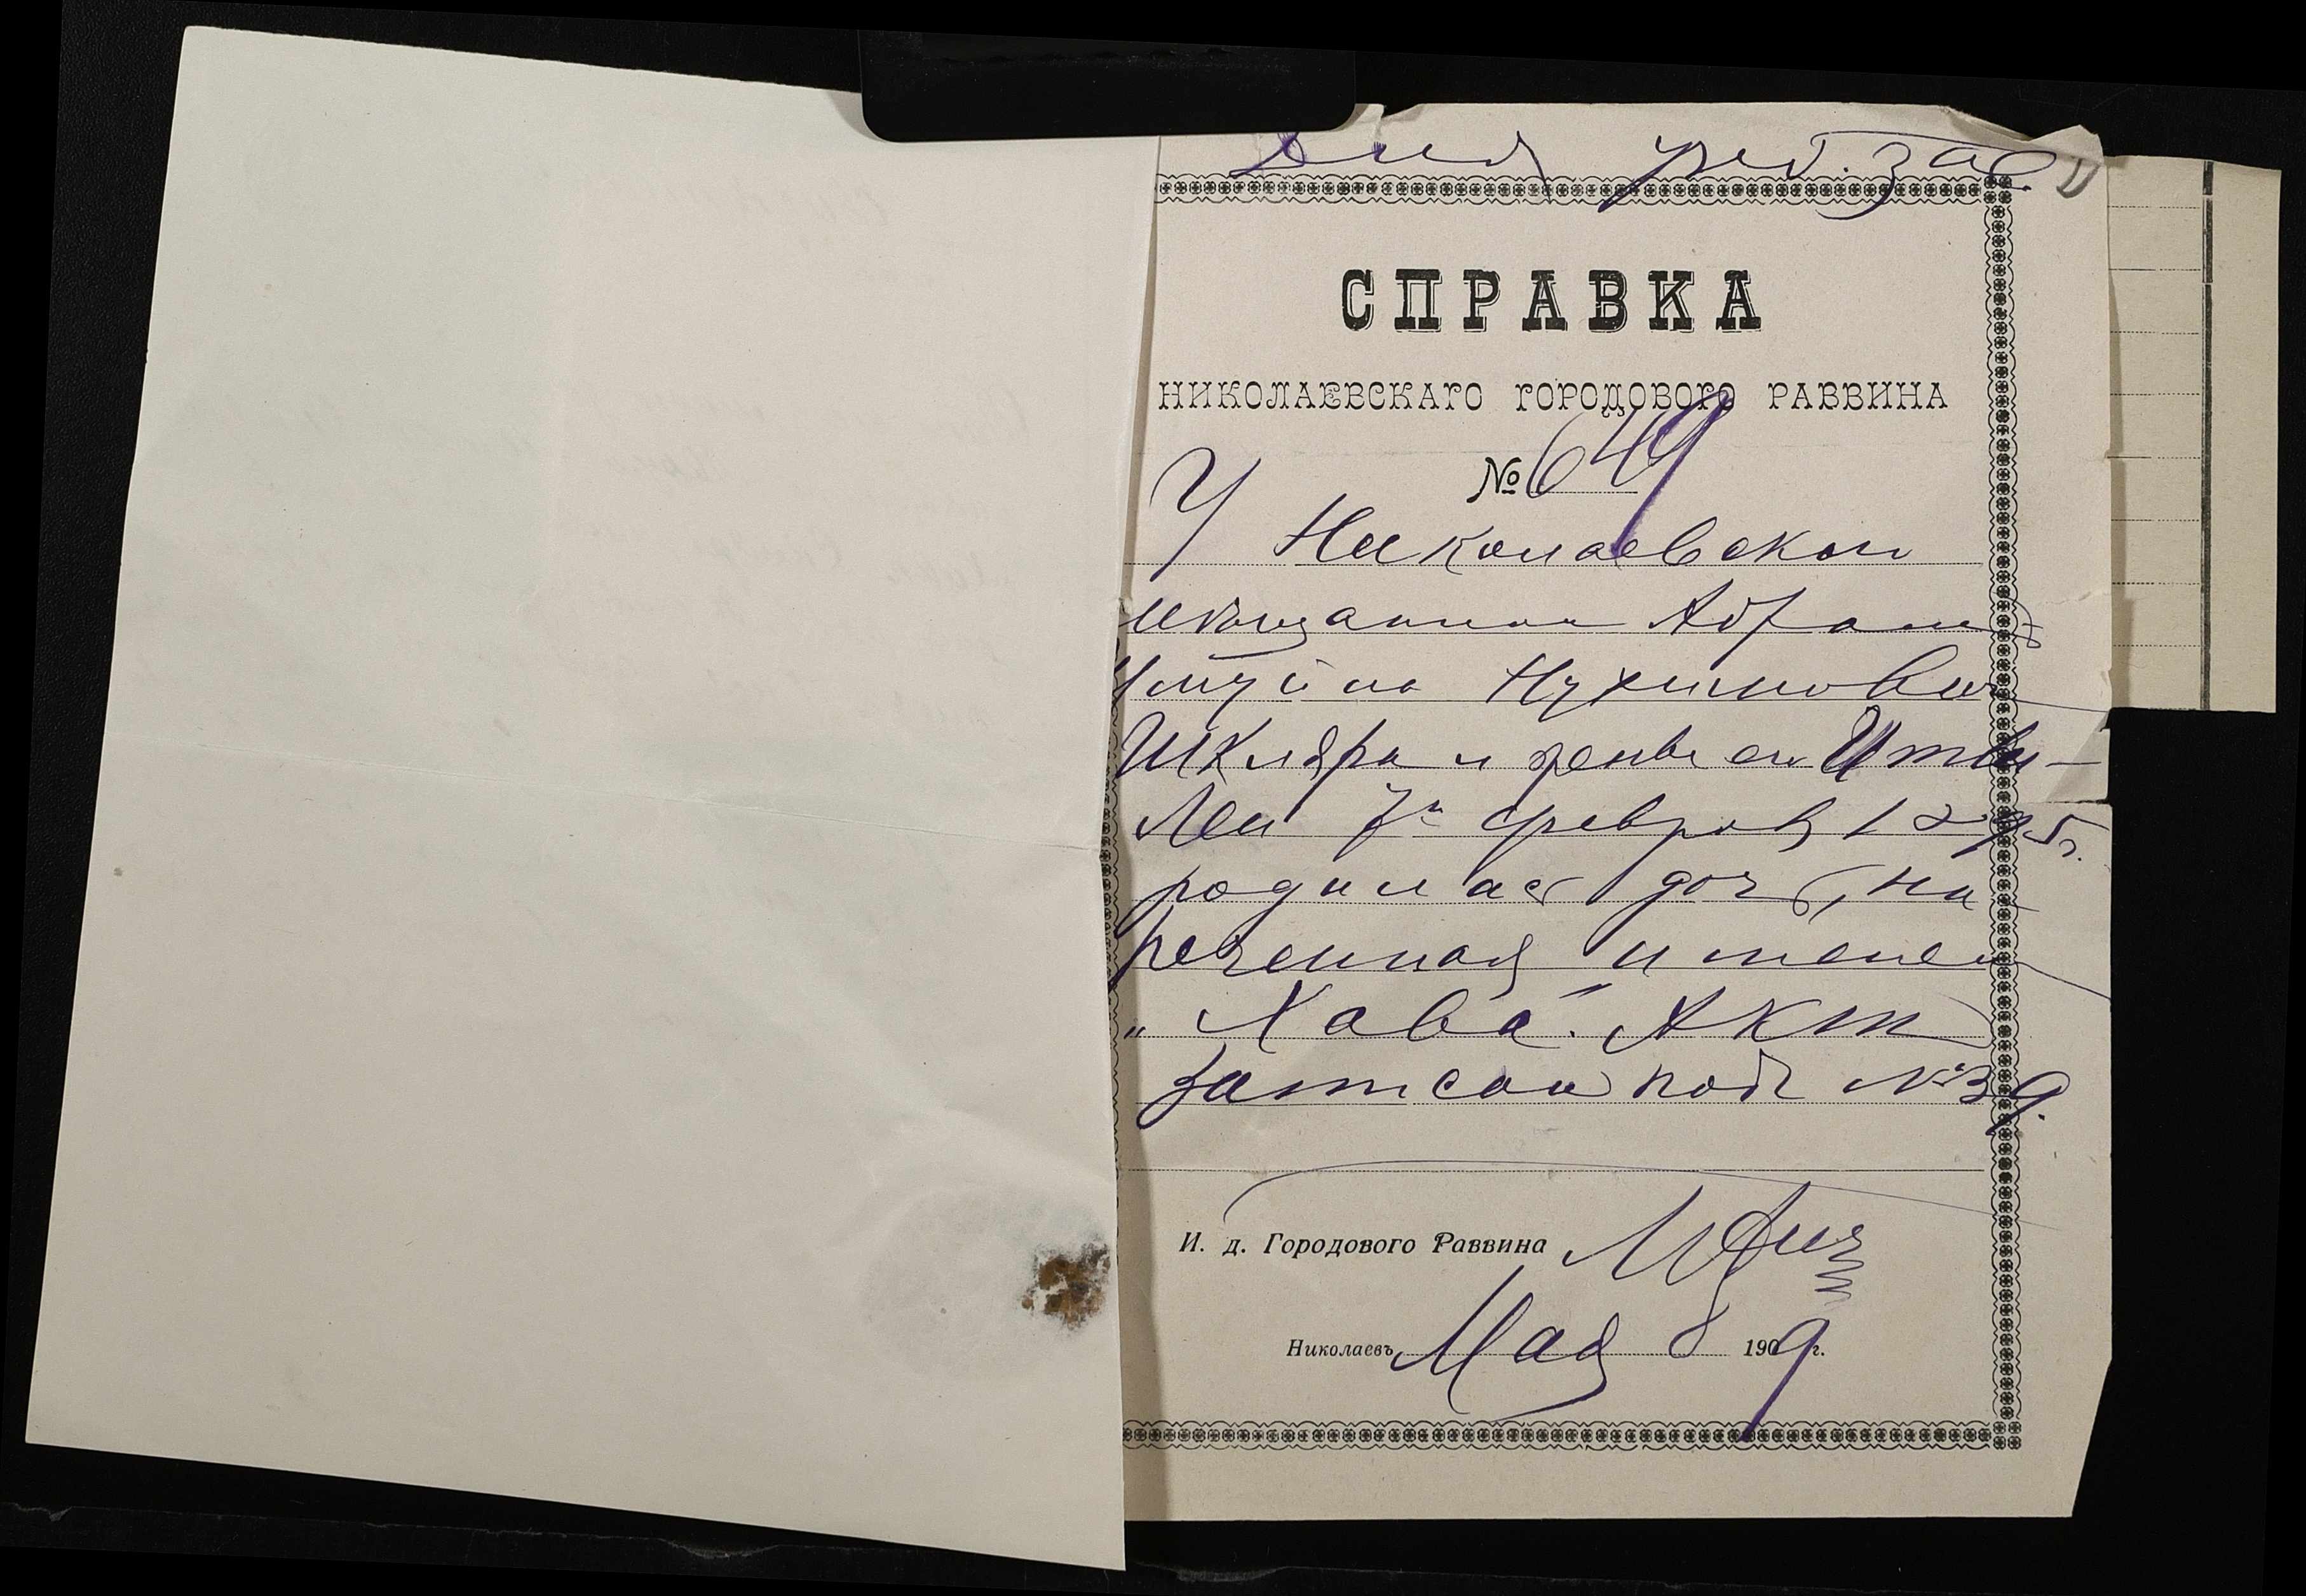 Для учеб. зав.
СПРАВКА
НИКОЛАЕВСКАГО ГОРОДОВОГО РАВВИНА
№ 649
У Николаевского
мѣщанина Абрама
Шмуйла Нухимовича
Шкляра и жены его Итты-
Леи 7го февраля 1895 г.
родилась дочь, на
реченная именем
„Хава". Акт
записан подъ № 39.
И. д. Городового Раввина
Николаевъ, Мая 8 1909 г.